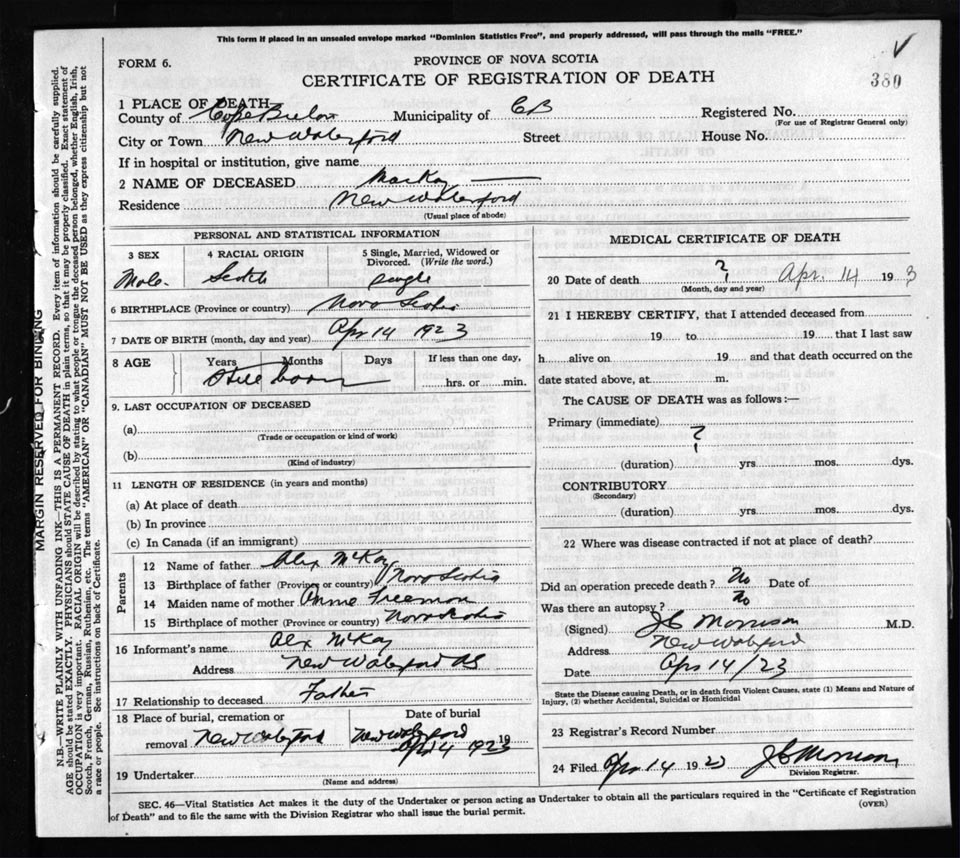 This form if placed in an unsealed envelope marked "Dominion Statistics Free", and properly addressed, will pass through the mails "FREE."
FORM 6.
PROVINCE OF NOVA SCOTIA
380
CERTIFICATE OF REGISTRATION OF DEATH
1 PLACE OF DEATH
County of Cape Breton Municipality of CB Registered No.
(For use of Registrar General only)
City or Town New Waterford Street House No.
If in hospital or institution, give name
2 NAME OF DECEASED MacKay
Residence New Waterford
(Usual place of abode)
PERSONAL AND STATISTICAL INFORMATION
3 SEX 4 RACIAL ORIGIN 5 Single, Married, Widowed or Divorced. (Write the word.)
Male. Scotch single
6 BIRTHPLACE (Province or country) Nova Scotia
7 DATE OF BIRTH (month, day and year) Apr 14 1923
8 AGE Years Months Days If less than one day,
Still born hrs. or min.
9. LAST OCCUPATION OF DECEASED
(a)
(Trade or occupation or kind of work)
(b)
(Kind of industry)
11 LENGTH OF RESIDENCE (in years and months)
(a) At place of death
(b) In province
(c) In Canada (if an immigrant)
Parents
12 Name of father Alex McKay
13 Birthplace of father (Province or country) Nova Scotia
14 Maiden name of mother Annie Freeman
15 Birthplace of mother (Province or country) Nova Scotia
16 Informant's name Alex McKay
Address New Waterford NS
17 Relationship to deceased Father
18 Place of burial, cremation or Date of burial
removal New Waterford New Waterford 19
Apr 14 1923
19 Undertaker
(Name and address)
MEDICAL CERTIFICATE OF DEATH
20 Date of death ? Apr. 14 19 3
(Month, day and year)
21 I HEREBY CERTIFY, that I attended deceased from
19 to 19 that I last saw
h alive on 19 and that death occurred on the
date stated above, at m.
The CAUSE OF DEATH was as follows:—
Primary (immediate)
?
(duration) yrs. mos. dys.
CONTRIBUTORY
(Secondary)
(duration) yrs. mos. dys.
22 Where was disease contracted if not at place of death?
Did an operation precede death? No Date of
Was there an autopsy? No
(Signed) JC Morrison M.D.
Address New Waterford
Date Apr 14/23
State the Disease causing Death, or in death from Violent Causes, state (1) Means and Nature of
Injury, (2) whether Accidental, Suicidal or Homicidal
23 Registrar's Record Number
24 Filed Apr 14 1923 JC Morrison
Division Registrar.
SEC. 46—Vital Statistics Act makes it the duty of the Undertaker or person acting as Undertaker to obtain all the particulars required in the "Certificate of Registration
of Death" and to file the same with the Division Registrar who shall issue the burial permit.
(OVER)
MARGIN RESERVED FOR BINDING
N.B.—WRITE PLAINLY WITH UNFADING INK—THIS IS A PERMANENT RECORD. Every item of information should be carefully supplied.
AGE should be stated EXACTLY. PHYSICIANS should STATE CAUSE OF DEATH in plain terms, so that it may be properly classified. Exact statement of
OCCUPATION is very important. RACIAL ORIGIN will be described by stating to what people or tongue the deceased person belonged, whether English, Irish,
Scotch, French, German, Russian, Ruthenian, etc. The terms "AMERICAN" or "CANADIAN" MUST NOT BE USED as they express citizenship but not
a race or people. See instructions on back of Certificate.